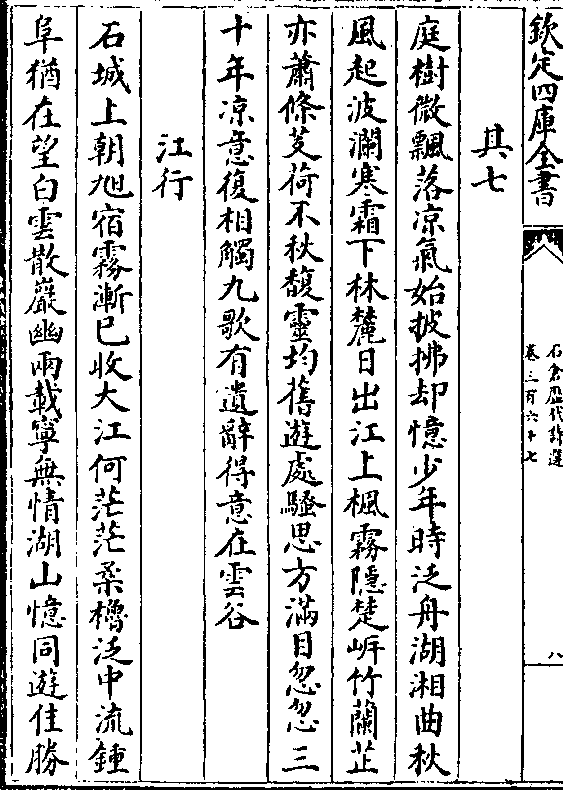 欽定四庫全書
石倉歷代詩選
卷三百六十七
八
其七
庭樹微飄落凉氣始披拂却憶少年時泛舟湖湘曲秋
風起波瀾寒霜下林麓日出江上楓霧隱楚岸竹蘭芷
亦蕭條芰荷不秋馥靈均舊遊處騷思方滿目忽忽三
十年凉意復相觸九歌有遺辭得意在雲谷
江行
石城上朝旭宿霧漸已收大江何茫茫柔櫓泛中流鍾
阜猶在望白雲散巖幽兩載寧無情湖山憶同遊佳勝